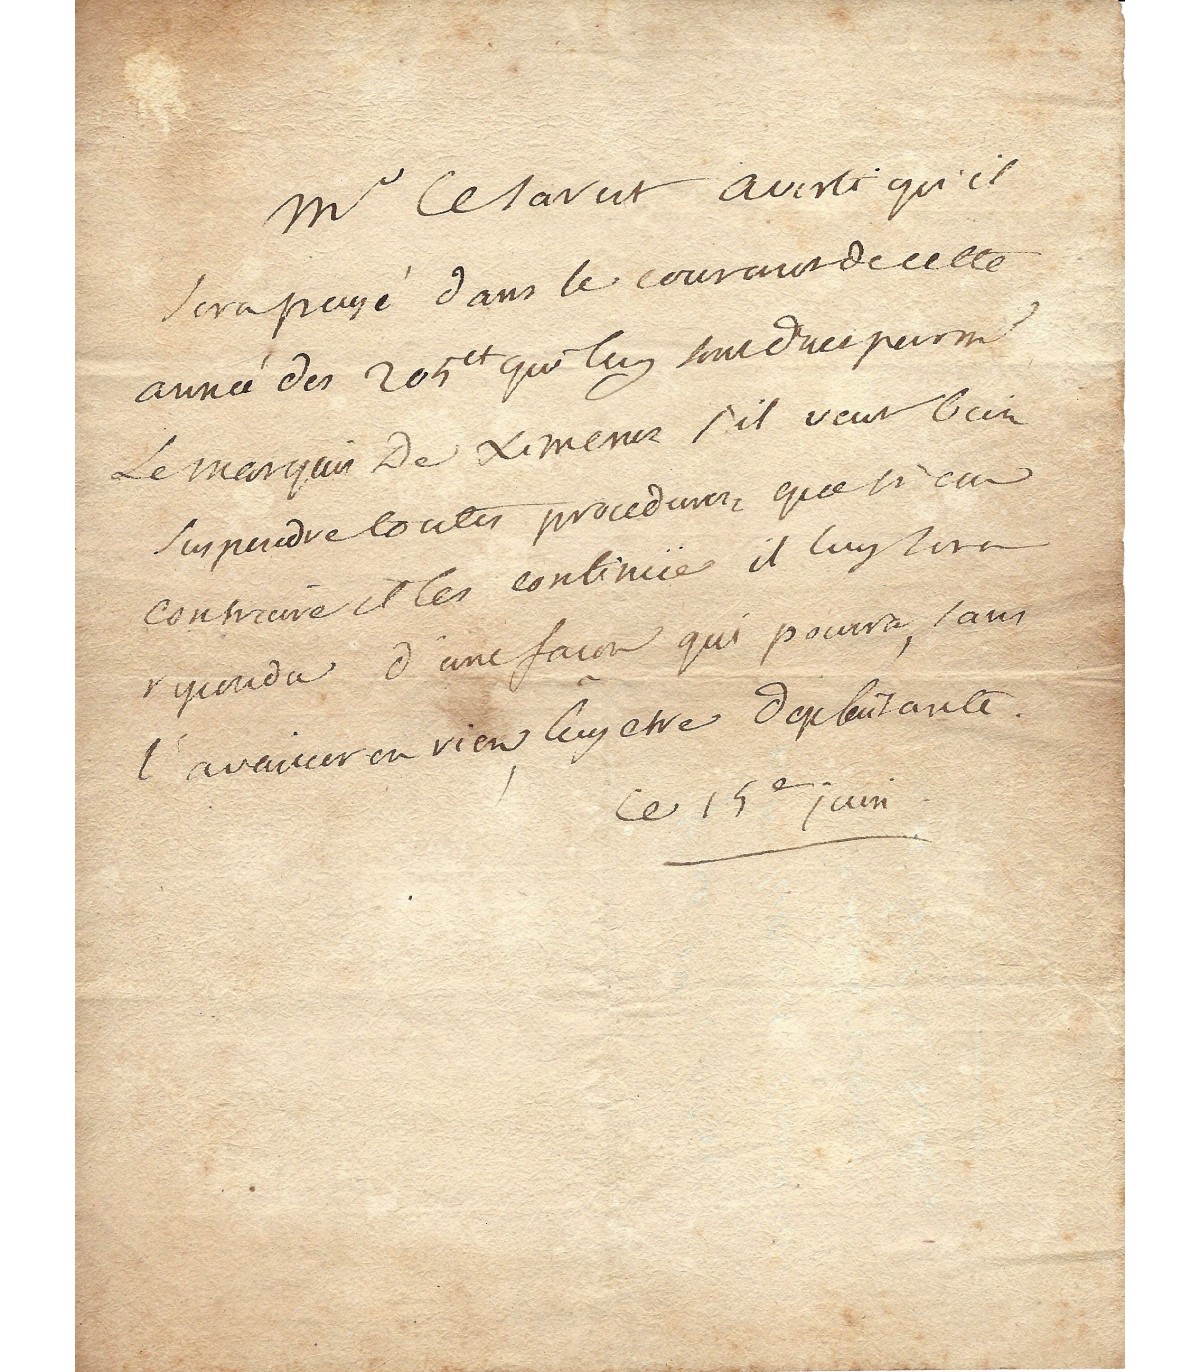 Mr Cesar est averti qu'il
sera payé dans le courant de cette
année des 205lt qui luy sont dues par mr
Le marquis De Ximenes s'il veut bien
suspendre toutes procedures, que si au
contraire il les continüe il luy sera
repondu d'une facon qui pourra, sans
l'avancer en rien, luy etre deplaisante.
ce 15e juin